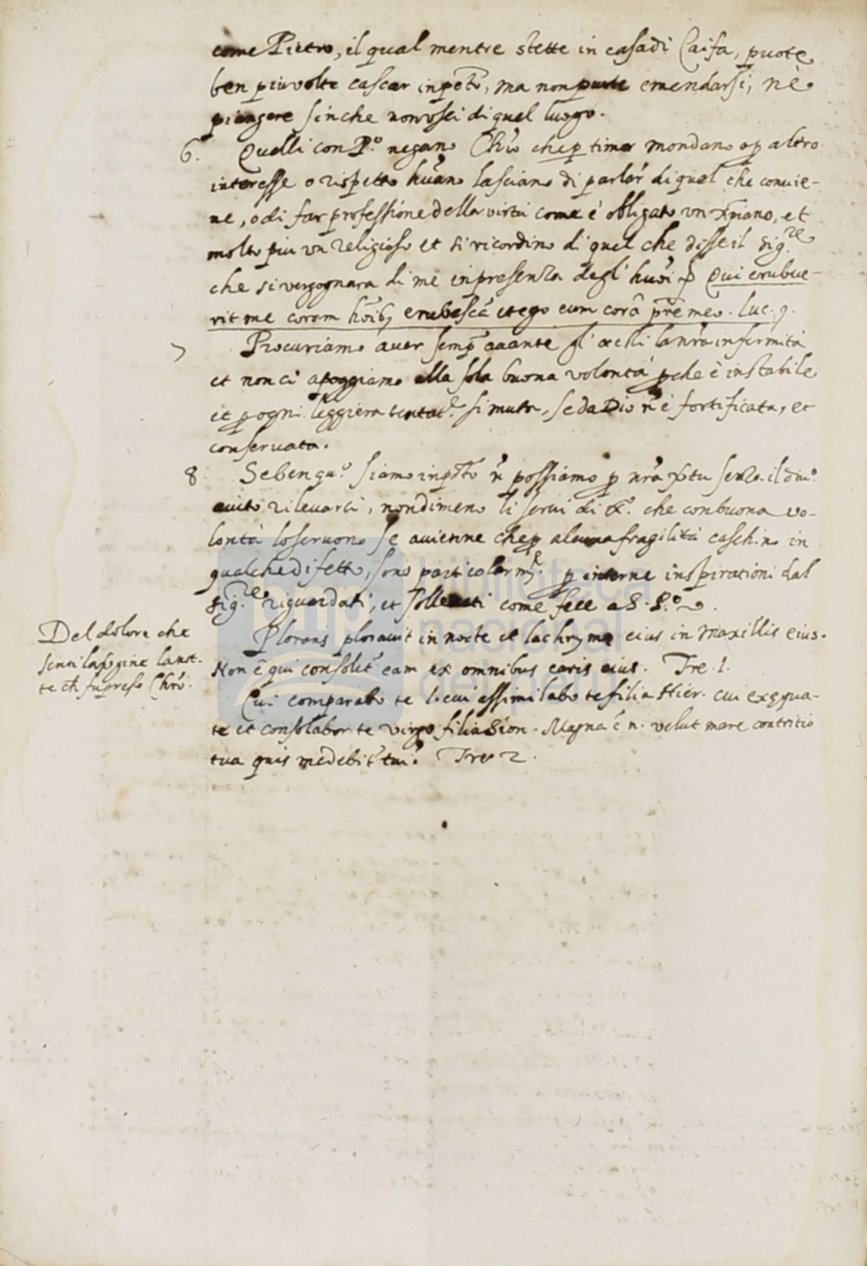 come Pietro, il qual mentre stette in casa di Caifa, puote
ben piu volte cascar in pecto, ma non puote emendarsi, nè
piangere sinche non uscì di quel luogo.
6. Quelli con P.º negano Chrō che p timor mondano o p altro
interesse o rispetto huāno lasciano di parlar di quel che convie-
ne, o di far professione della virtù come è obligato un xpiano, et
molto piu un religioso et si ricordino di quel che disse il Sig.re
che si vergognara di me in presenza degl' huōi Qui erubue-
rit me coram hōib; erubescā et ego eum corā pr̄e meo. Luc. 9.
7 Procuriamo aver semp avante gl' occhi la nr̄a infermità
et non ci apoggiamo alla sola buona volontà pche è instabile
et p ogni leggiera tentat.e si muta, se da Dio nō è fortificata, et
conservata.
8 Seben qu.º siamo in pctō nō possiamo p nr̄a virtu senza il div.º
aiuto rilevarci, nondimeno li servi di X.º che con buona vo-
lontà lo servono se avienne che p alcuna fragilità caschino in
qualche difetto, sono particolarm.te p interne inspirationi dal
Sig.re riguardati, et sollevati come fece a S. P.º
Del dolore che
sentì la Vergine la not-
te ch' fu preso Chrō.
Plorans ploravit in nocte et lachryme eius in maxillis eius.
Non ē qui consolet' eam ex omnibus caris eius. Tre. 1.
Cui comparabo te l. cui assimilabo te filia Hier. cui exequa-
te et consolabor te virgo filia Sion. Magna ē n. velut mare contritio
tua quis medebit' tui? Tre 2.
biblioteca
nacional